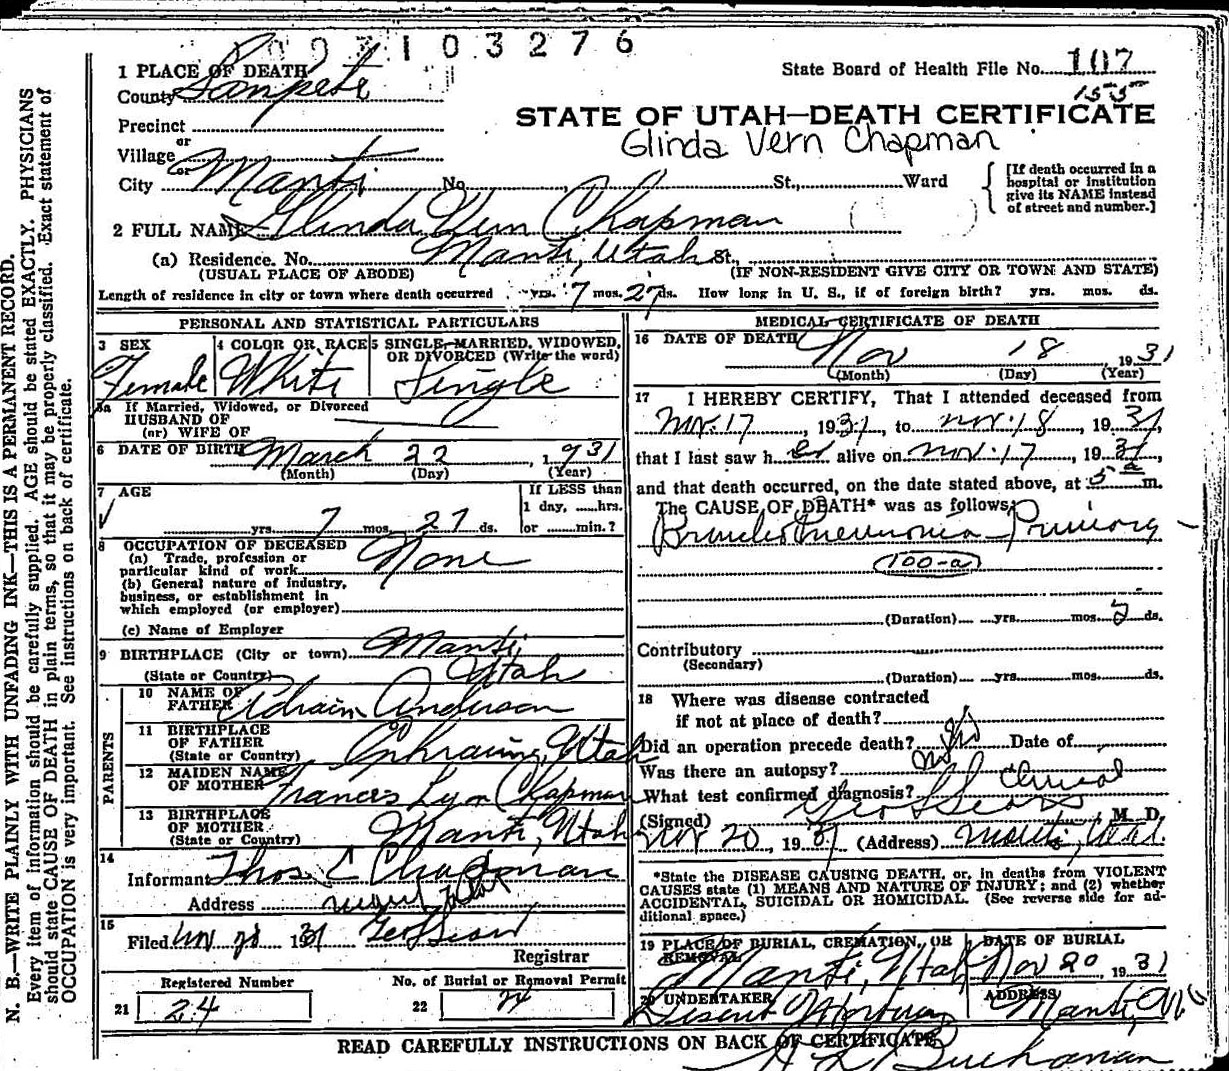 103276
1 PLACE OF DEATH
County Sanpete
State Board of Health File No. 107
155
Precinct
STATE OF UTAH—DEATH CERTIFICATE
or
Glinda Vern Chapman
Village
or
City Manti No. St., Ward
[If death occurred in a hospital or institution give its NAME instead of street and number.]
2 FULL NAME Glinda Vern Chapman
(a) Residence. No. Manti, Utah St.
(USUAL PLACE OF ABODE) (IF NON-RESIDENT GIVE CITY OR TOWN AND STATE)
Length of residence in city or town where death occurred yrs. 7 mos. 27 ds. How long in U. S., if of foreign birth? yrs. mos. ds.
PERSONAL AND STATISTICAL PARTICULARS
3 SEX Female
4 COLOR OR RACE White
5 SINGLE, MARRIED, WIDOWED, OR DIVORCED (Write the word) Single
5a If Married, Widowed, or Divorced
HUSBAND OF
(or) WIFE OF
6 DATE OF BIRTH March 22, 1931
(Month) (Day) (Year)
7 AGE
yrs. 7 mos. 27 ds.
If LESS than
1 day, hrs.
or min.?
8 OCCUPATION OF DECEASED
(a) Trade, profession or
particular kind of work None
(b) General nature of industry,
business, or establishment in
which employed (or employer)
(c) Name of Employer
9 BIRTHPLACE (City or town) Manti,
(State or Country) Utah
PARENTS
10 NAME OF
FATHER Adrain Anderson
11 BIRTHPLACE
OF FATHER
(State or Country) Ephraim, Utah
12 MAIDEN NAME
OF MOTHER Frances Lyon Chapman
13 BIRTHPLACE
OF MOTHER
(State or Country) Manti, Utah
14
Informant Thos. C Chapman
Address
15
Filed Nov 28 1931 Geo Sears
Registrar
Registered Number
21 24
No. of Burial or Removal Permit
22 24
MEDICAL CERTIFICATE OF DEATH
16 DATE OF DEATH Nov 18, 1931
(Month) (Day) (Year)
17 I HEREBY CERTIFY, That I attended deceased from
Nov. 17, 1931, to Nov. 18, 1931,
that I last saw her alive on Nov. 17, 1931,
and that death occurred, on the date stated above, at 5 a m.
The CAUSE OF DEATH* was as follows:
Broncho Pneumonia — Primary —
100-a
(Duration) yrs. mos. 2 ds.
Contributory
(Secondary)
(Duration) yrs. mos. ds.
18 Where was disease contracted
if not at place of death?
Did an operation precede death? No Date of
Was there an autopsy? No
What test confirmed diagnosis? Clinical
(Signed) Geo L Sears M. D.
Nov 20, 1931 (Address) Manti, Utah.
*State the DISEASE CAUSING DEATH, or, in deaths from VIOLENT
CAUSES state (1) MEANS AND NATURE OF INJURY; and (2) whether
ACCIDENTAL, SUICIDAL OR HOMICIDAL. (See reverse side for ad-
ditional space.)
19 PLACE OF BURIAL, CREMATION, OR
REMOVAL Manti, Utah
DATE OF BURIAL
Nov 20, 1931
20 UNDERTAKER Deseret Mortuary
ADDRESS
Manti, Utah
READ CAREFULLY INSTRUCTIONS ON BACK OF CERTIFICATE
Buchanan
N. B.—WRITE PLAINLY WITH UNFADING INK—THIS IS A PERMANENT RECORD.
Every item of information should be carefully supplied. AGE should be stated EXACTLY. PHYSICIANS
should state CAUSE OF DEATH in plain terms, so that it may be properly classified. Exact statement of
OCCUPATION is very important. See instructions on back of certificate.